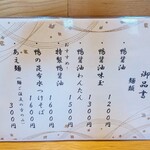 御品書
麺類
鴨醤油 1200円
鴨醤油味玉 1300円
鴨醤油わんたん 1500円
おすすめ
特製鴨醤油 1600円
鴨の昆布水つけそば 1600円
あえ麺 300円